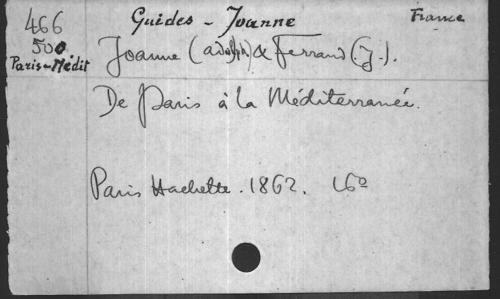 466
500
Paris-Médit
Guides - Joanne
France
Joanne (Adolphe) & Ferrand (J.).
De Paris à la Méditerranée.
Paris Hachette. 1862. 16º